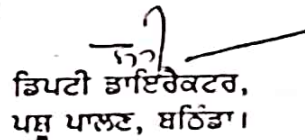 ਡਿਪਟੀ ਡਾਇਰੈਕਟਰ,
ਪਸ਼ੂ ਪਾਲਣ, ਬਠਿੰਡਾ।